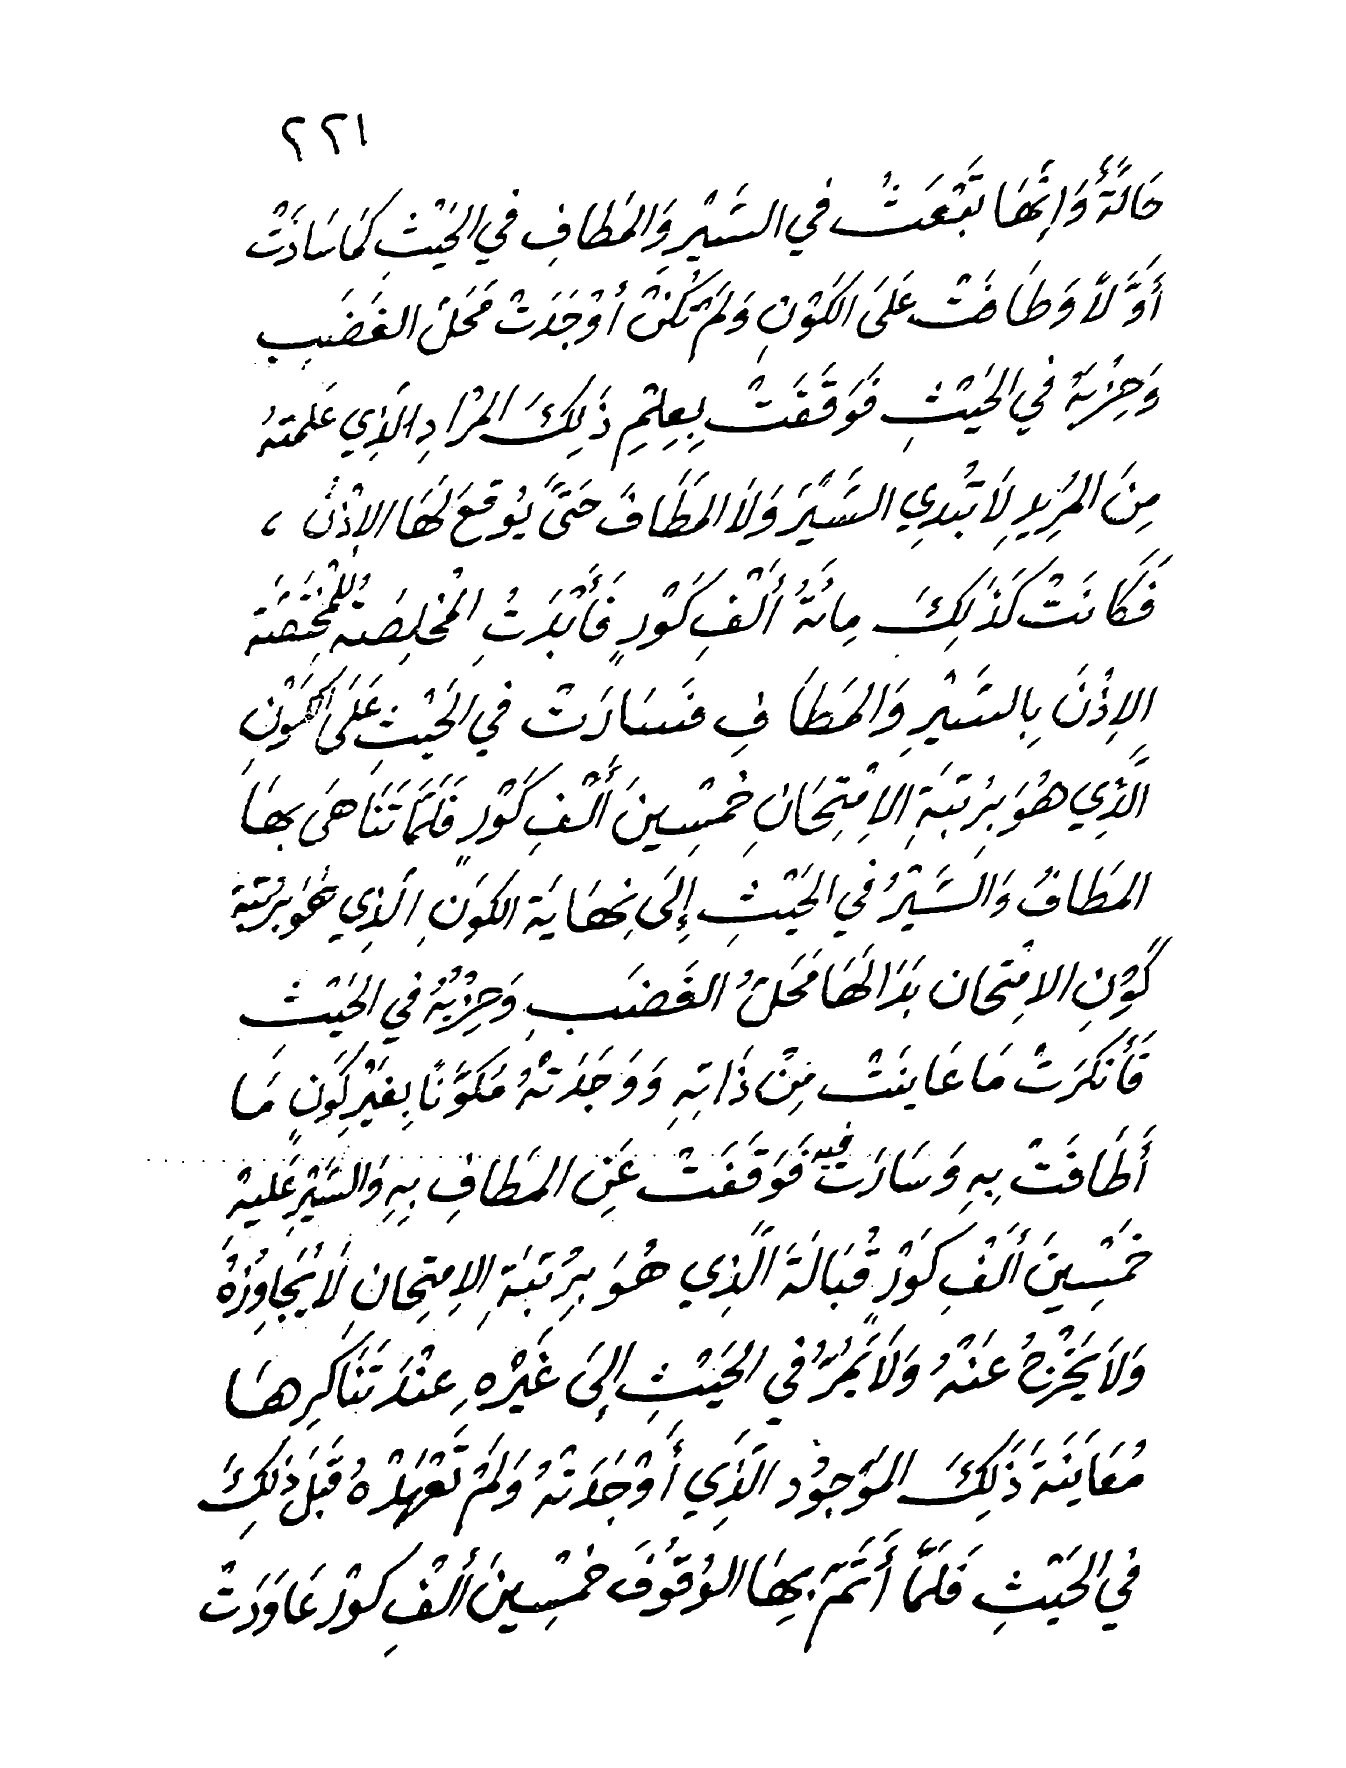 ٢٢١
حَالَةً وَإِنَّهَا تَبْعَثُ في السَّيْرِ وَالمَطافِ في الحَيْثِ كَمَا سَارَتْ
أَوَّلاً وَطَافَتْ عَلَى الكَوْنِ وَلَمْ تَكُنْ أُوْجَدَتْ مَحَلَّ الغَضَبِ
وَحِزْبَهُ في الحَيْثِ فَوَقَفَتْ بِعِلْمِ ذَلِكَ المُرَادِ الَّذِي عَلِمَتهُ
مِنَ المُرِيدِ لاَ تُبْدِي السَّيْرَ وَلاَ المَطَافَ حَتَّى يُوقعَ لَهَا الإِذْنُ ،
فَكَانَتْ كَذَلِكَ مِائَةُ أَلْفِ كَوْرٍ فَأَبْدَتِ المُخْلِصَةُ لِلْمُخْتَصَّةِ
الإِذْنَ بِالسَّيْرِ وَالمَطَافِ فَسَارَتْ في الحَيْثِ عَلَى الكَوْنِ
الَّذِي هُوَ بِرُتْبَةِ الإِمْتِحَانِ خَمْسِينَ أَلْفِ كَوْرٍ فَلَمَّا تَنَاهَى بِهَا
المَطَافُ وَالسَّيْرُ في الحَيْثِ إِلَى نِهَايَة الكَوْنِ الَّذِي هُوَ بِرُتْبَةِ
كَوْنِ الامْتحان بَدَا لَهَا مَحَلُّ الغَضَبِ وَحِزْبُهُ في الحَيْثِ
فَأَنْكَرَتْ مَا عَايَنَتْ مِنْ ذَاتِهِ وَوَجَدَتْهُ مُكَوَّنًا بِغَيْرِ كَوْنٍ مَا
أَطَافَتْ بِهِ وَسَارَتْ فيه فَوَقَفَتْ عَنِ المَطَافِ بِهِ وَالسَّيْرِ عَليهْ
خَمْسِينَ أَلْفِ كَوْرٍ قُبَالَةَ الَّذِي هُوَ بِرُتْبَةِ الإِمتِحانِ لاَ يُجَاوِزهُ
وَلاَ يَخْرُجُ عَنْهُ وَلاَ يَمُرُّ في الحَيْثِ إلىَ غَيْرِهِ عِنْدَ تَنَاكرِهَا
مُعَايَنَةَ ذَلِكَ المَوْجُود الَّذِي أَوْجَدَتْهُ وَلَمْ تَعْهَدْهُ قَبْلَ ذَلِكَ
في الحَيْثِ فَلَمَّا أَتَمَّ بِهَا الوُقوُفَ خَمْسِينَ أَلْفِ كَوْر عَاوَدَتْ